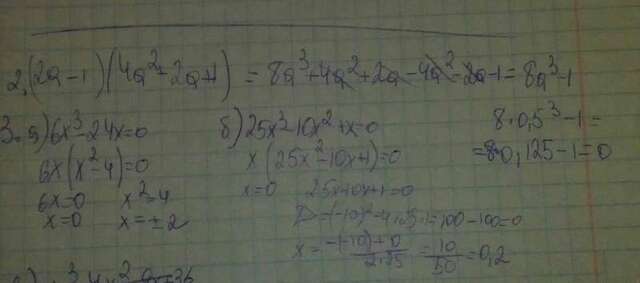 2. (2a-1)(4a²+2a+1) = 8a³+4a²+2a-4a²-2a-1 = 8a³-1
8·0,5³-1=
=8·0,125-1=0
3. а) 6x³-24x=0
6x(x²-4)=0
6x=0 x²=4
x=0 x=±2
б) 25x³-10x²+x=0
x(25x²-10x+1)=0
x=0 25x²-10x+1=0
D=(-10)²-4·25·1=100-100=0
x= -(-10)+0 / 2·25 = 10/50 =0,2